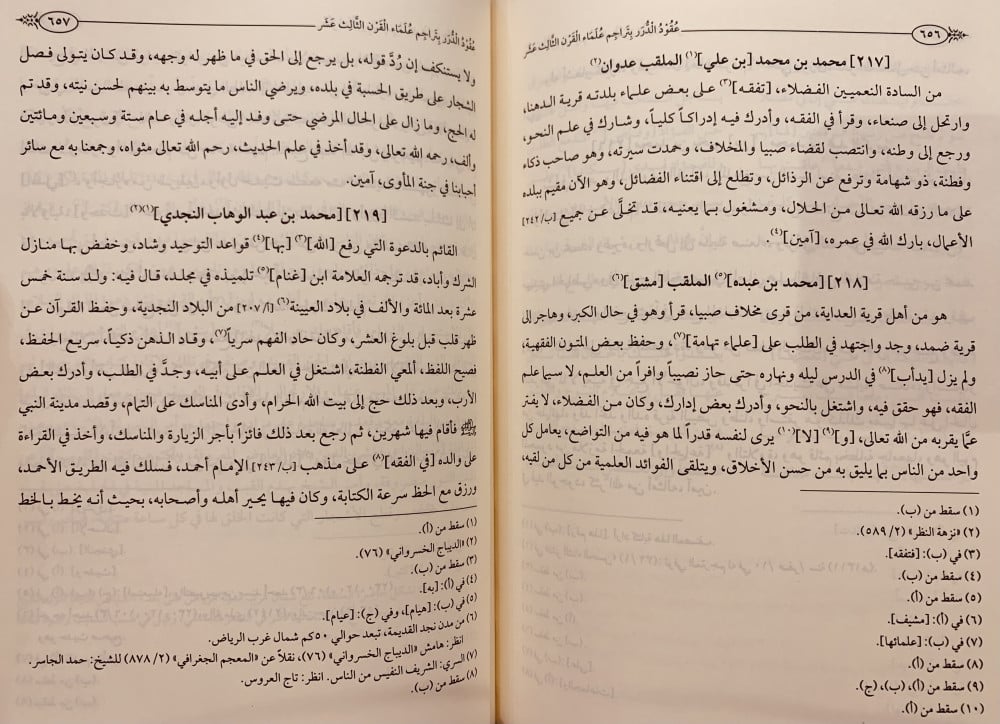 ٦٥٦
عُقُودُ الدُّرَر بِتَراجِم عُلَمَاء القَرْن الثَّالِث عَشَر
[٢١٧] محمد بن محمد [بن علي](١) الملقب عدوان(٢)
من السادة النعميين الفضلاء، [تفقه](٣) على بعض علماء بلدته قرية الدهنا،
وارتحل إلى صنعاء، وقرأ في الفقه، وأدرك فيه إدراكاً كلياً، وشارك في علم النحو،
ورجع إلى وطنه، وانتصب لقضاء صبيا والمخلاف، وحمدت سيرته، وهو صاحب ذكاء
وفطنة، ذو شهامة وترفع عن الرذائل، وتطلع إلى اقتناء الفضائل، وهو الآن مقيم ببلده
على ما رزقه الله تعالى من الحلال، ومشغول بما يعنيه، قد تخلَّى عن جميع [٢٤٢/ب]
الأعمال، بارك الله في عمره، [آمين](٤).
[٢١٨] [محمد بن عبده](٥) الملقب [مشق](٦)
هو من أهل قرية العداية، من قرى مخلاف صبيا، قرأ وهو في حال الكبر، وهاجر إلى
قرية ضمد، وجد واجتهد في الطلب على [علماء تهامة](٧)، وحفظ بعض المتون الفقهية،
ولم يزل [يدأب](٨) في الدرس ليله ونهاره حتى حاز نصيباً وافراً من العلم، لا سيما علم
الفقه، فهو حقق فيه، واشتغل بالنحو، وأدرك بعض إدارك، وكان من الفضلاء، لا يفتر
عمَّا يقربه من الله تعالى، [و](٩) [لا](١٠) يرى لنفسه قدراً لما هو فيه من التواضع، يعامل كل
واحد من الناس بما يليق به من حسن الأخلاق، ويتلقى الفوائد العلمية من كل من لقيه،
(١) سقط من (ب).
(٢) «نزهة النظر» (٢/ ٥٨٩).
(٣) في (ب): [فتفقه].
(٤) سقط من (ب).
(٥) سقط من (أ).
(٦) في (أ): [مشيف].
(٧) في (ب): [علمائها].
(٨) سقط من (أ).
(٩) سقط من (أ)، (ب)، (ج).
(١٠) سقط من (أ).
عُقُودُ الدُّرَر بِتَراجِم عُلَمَاء القَرْن الثَّالِث عَشَر
٦٥٧
ولا يستنكف إن رُدَّ قوله، بل يرجع إلى الحق في ما ظهر له وجهه، وقد كان يتولى فصل
الشجار على طريق الحسبة في بلده، ويرضي الناس ما يتوسط به بينهم لحسن نيته، وقد تم
له الحج، وما زال على الحال المرضي حتى وفد إليه أجله في عام ستة وسبعين ومائتين
وألف، رحمه الله تعالى، وقد أخذ في علم الحديث، رحم الله تعالى مثواه، وجمعنا به مع سائر
أحبابنا في جنة المأوى، آمين.
[٢١٩] [محمد بن عبد الوهاب النجدي](١)(٢)
القائم بالدعوة التي رفع [الله](٣) [بها](٤) قواعد التوحيد وشاد، وخفض بها منازل
الشرك وأباد، قد ترجمه العلامة ابن [غنام](٥) تلميذه في مجلد، قال فيه: ولد سنة خمس
عشرة بعد المائة والألف في بلاد العيينة(٦) [٢٠٧/أ] من البلاد النجدية، وحفظ القرآن عن
ظهر قلب قبل بلوغ العشر، وكان حاد الفهم سرياً(٧)، وقاد الذهن ذكياً، سريع الحفظ،
فصبح اللفظ، ألمعي الفطنة، اشتغل في العلم على أبيه، وجدَّ في الطلب، وأدرك بعض
الأرب، وبعد ذلك حج إلى بيت الله الحرام، وأدى المناسك على التمام، وقصد مدينة النبي
ﷺ فأقام فيها شهرين، ثم رجع بعد ذلك فائزاً بأجر الزيارة والمناسك، وأخذ في القراءة
على والده [في الفقه](٨) على مذهب [٢٤٣/ب] الإمام أحمد، فسلك فيه الطريق الأحمد،
ورزق مع الحظ سرعة الكتابة، وكان فيها يحير أهله وأصحابه، بحيث أنه يخط بالخط
(١) سقط من (أ).
(٢) «الديباج الخسرواني» (٧٦).
(٣) سقط من (ب).
(٤) في (أ): [به].
(٥) في (ب): [هيام]، وفي (ج): [عيام].
(٦) من مدن نجد القديمة، تبعد حوالي ٥٠كم شمال غرب الرياض.
انظر: هامش «الديباج الخسرواني» (٧٦)، نقلاً عن «المعجم الجغرافي» (٢/ ٨٧٨) للشيخ: حمد الجاسر.
(٧) السري: الشريف النفيس من الناس. انظر: تاج العروس.
(٨) سقط من (ب).